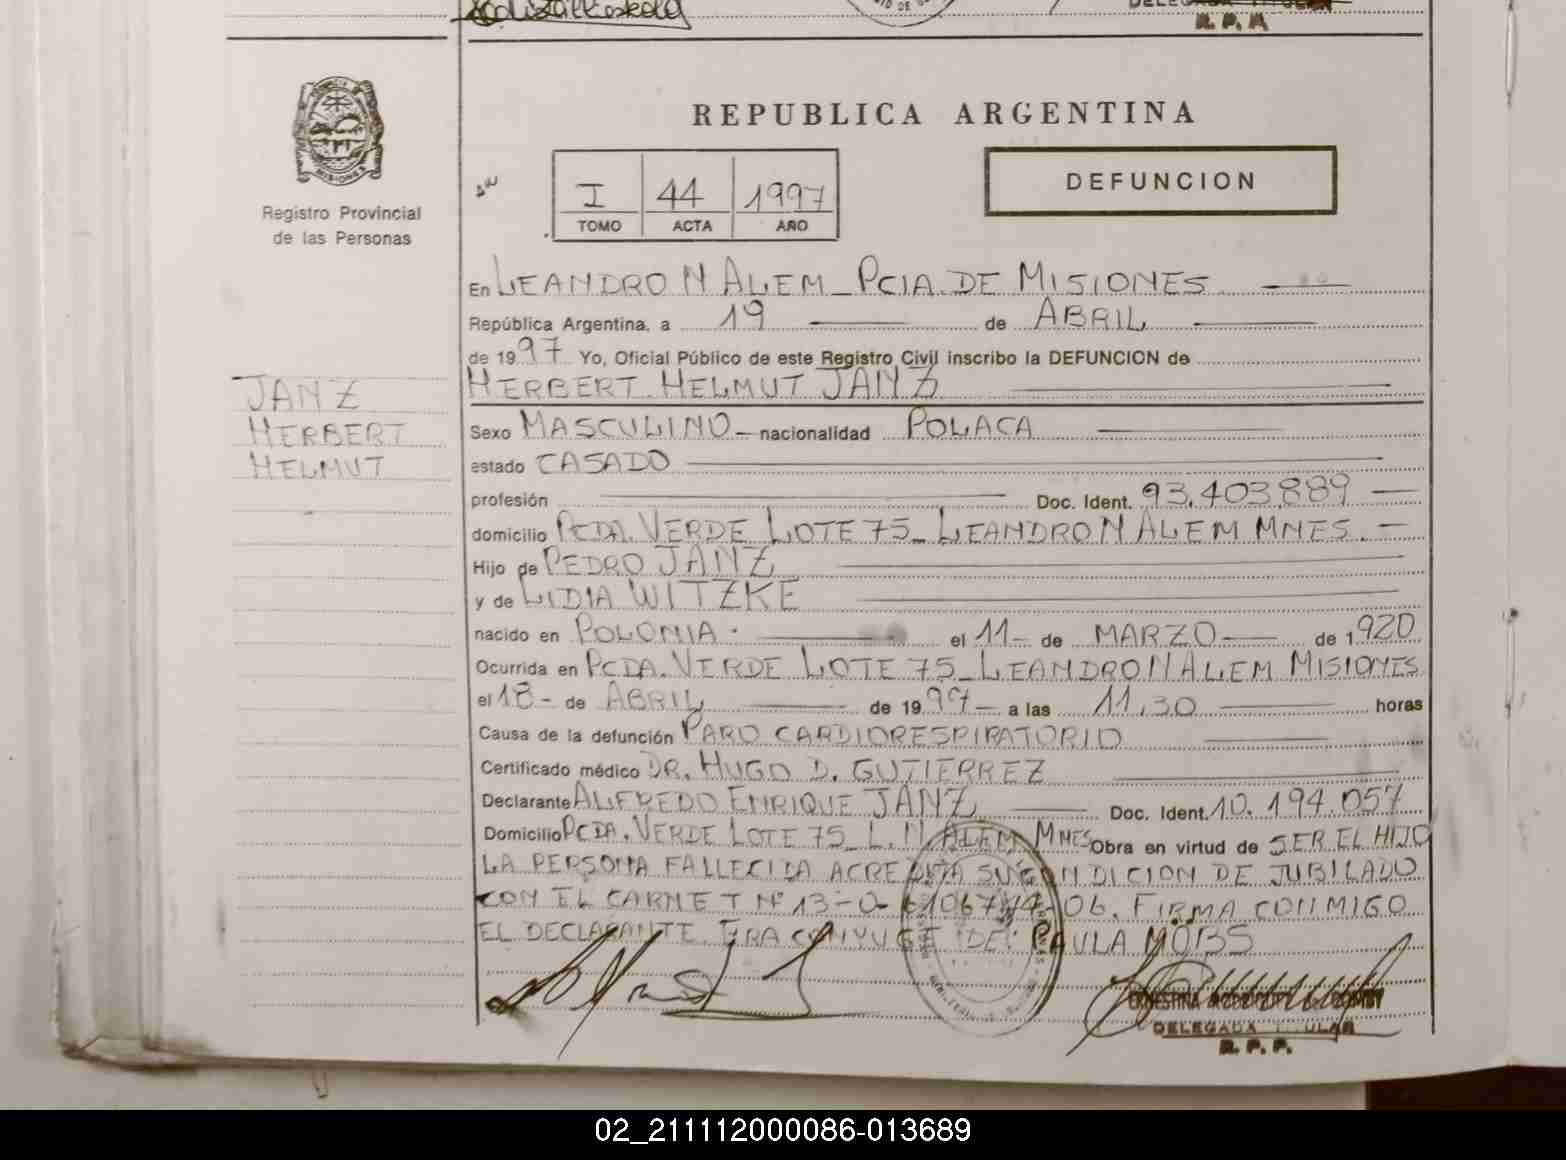 REPUBLICA ARGENTINA
MISIONES
Registro Provincial
de las Personas
I 44 1997
TOMO ACTA AÑO
DEFUNCION
En LEANDRO N ALEM _ PCIA. DE MISIONES
República Argentina, a 19 de ABRIL
de 1997 Yo, Oficial Público de este Registro Civil inscribo la DEFUNCION de
HERBERT HELMUT JANZ
JANZ
HERBERT
HELMUT
Sexo MASCULINO - nacionalidad POLACA
estado CASADO
profesión Doc. Ident. 93.403.889
domicilio PCDA. VERDE LOTE 75_ LEANDRO N ALEM MNES.
Hijo de PEDRO JANZ
y de LIDIA WITZKE
nacido en POLONIA. el 11- de MARZO de 1920
Ocurrida en PCDA. VERDE LOTE 75_ LEANDRO N ALEM MISIONES
el 18- de ABRIL de 1997 a las 11.30 horas
Causa de la defunción PARO CARDIORESPIRATORIO
Certificado médico DR. HUGO D. GUTIERREZ
Declarante ALFREDO ENRIQUE JANZ Doc. Ident. 10.194.057
Domicilio PCDA. VERDE LOTE 75_ L. N ALEM MNES Obra en virtud de SER EL HIJO
LA PERSONA FALLECIDA ACREDITA SU CONDICION DE JUBILADO
CON EL CARNET Nº 13-0- -06. FIRMA CONMIGO
EL DECLARANTE. ERA CONYUGE DE: PAULA
DELEGADA TITULAR
R. P. P.
02_211112000086-013689